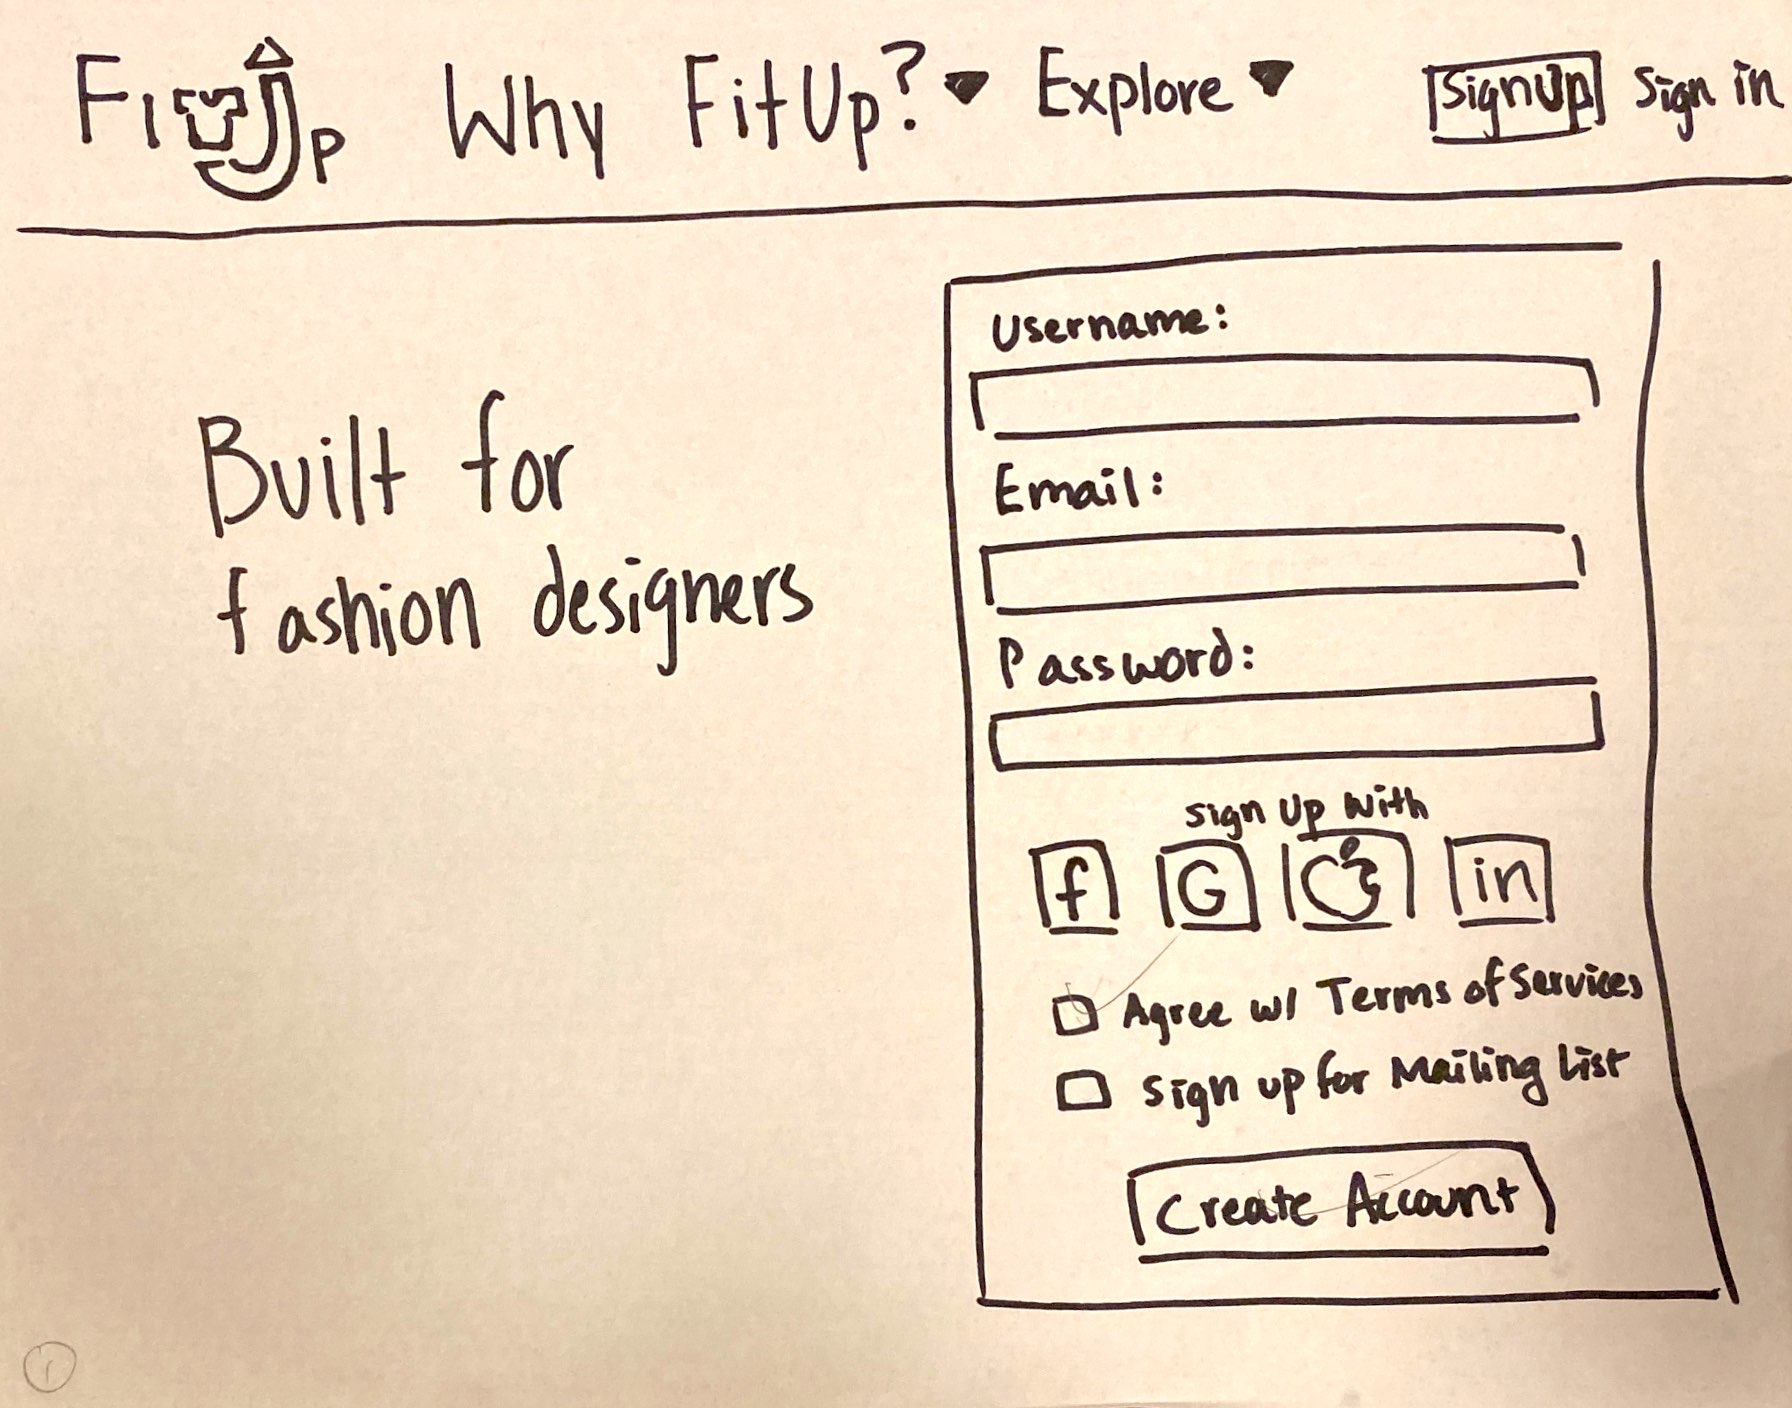 FitUp Why FitUp? Explore SignUp Sign in
Built for
fashion designers
Username:
Email:
Password:
Sign Up with
f G in
Agree w/ Terms of Services
Sign up for Mailing List
Create Account
1